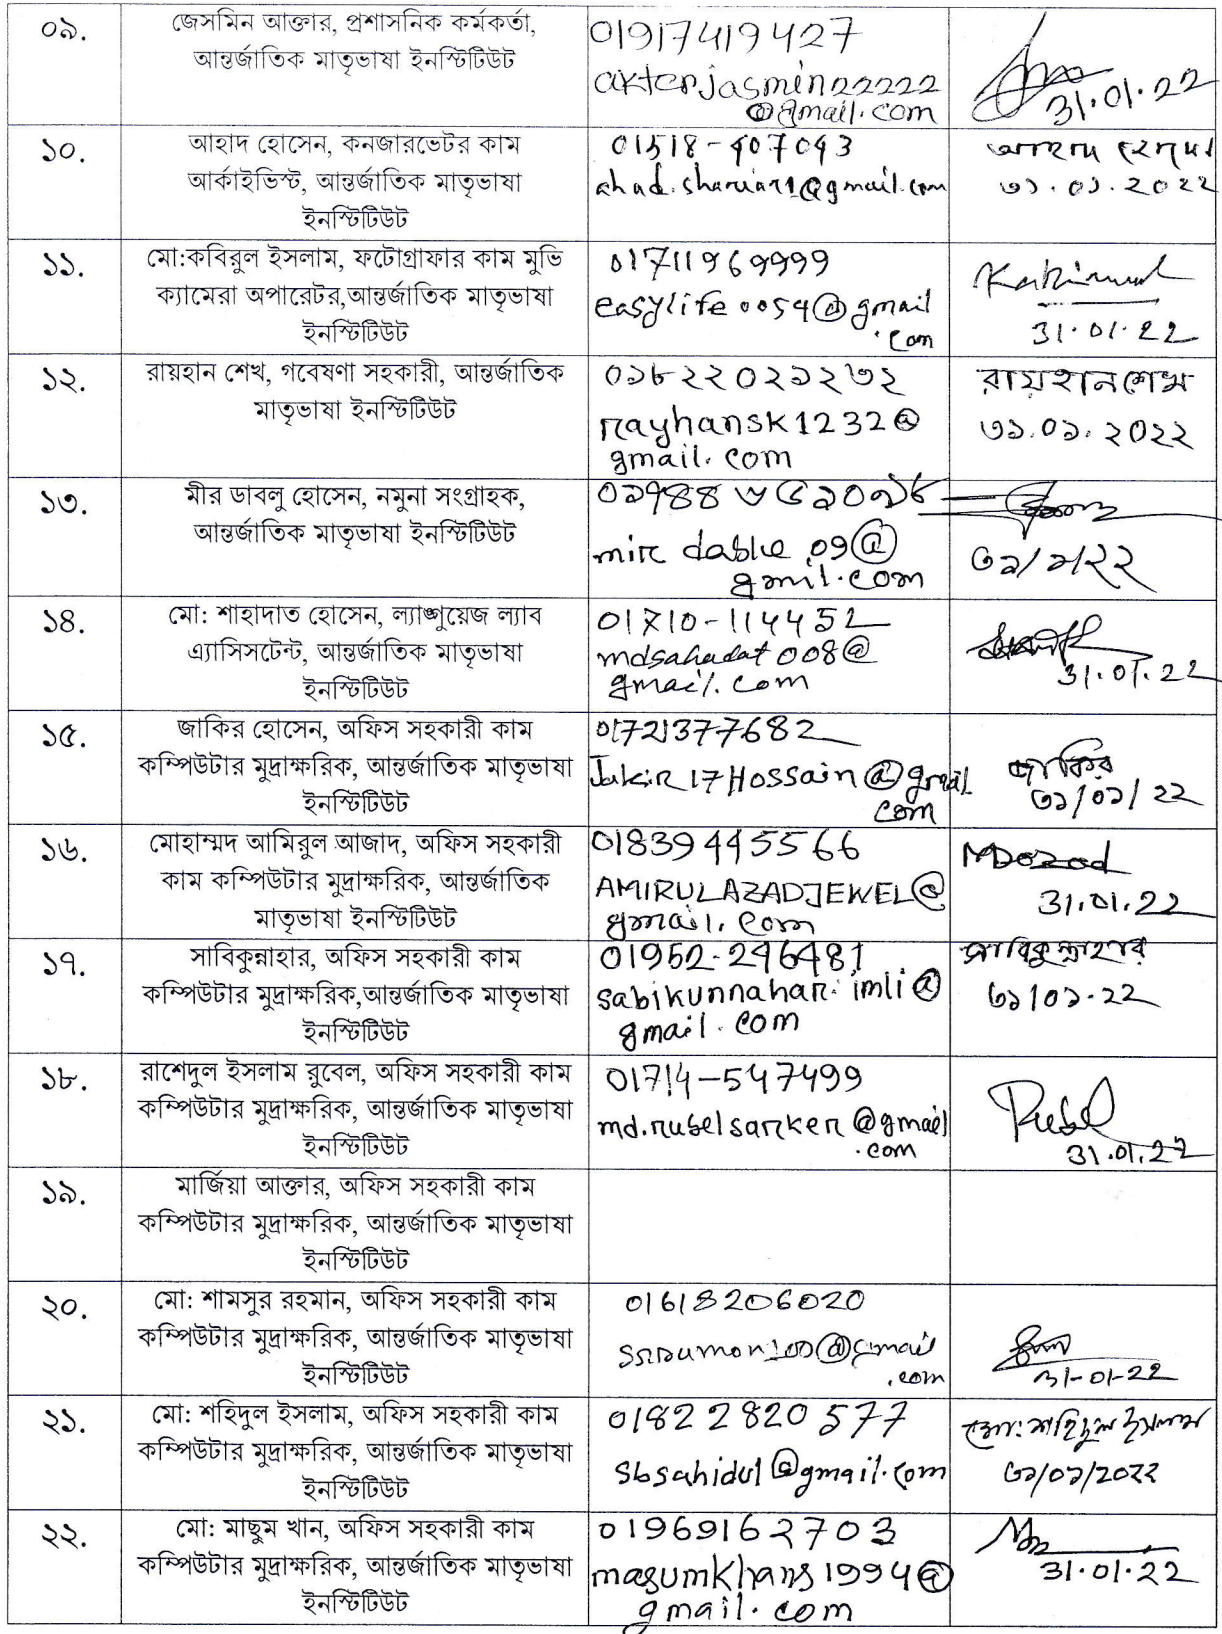 ০৯.
জেসমিন আক্তার, প্রশাসনিক কর্মকর্তা,
আন্তর্জাতিক মাতৃভাষা ইনস্টিটিউট
01917419427
akterjasmin22222
@gmail.com
31.01.22
১০.
আহাদ হোসেন, কনজারভেটর কাম
আর্কাইভিস্ট, আন্তর্জাতিক মাতৃভাষা
ইনস্টিটিউট
01518-907093
ahad.shariar1@gmail.com
৩১.০১.2022
১১.
মো:কবিরুল ইসলাম, ফটোগ্রাফার কাম মুভি
ক্যামেরা অপারেটর,আন্তর্জাতিক মাতৃভাষা
ইনস্টিটিউট
01711969999
easylife0059@gmail
.com
Kabirul
31.01.22
১২.
রায়হান শেখ, গবেষণা সহকারী, আন্তর্জাতিক
মাতৃভাষা ইনস্টিটিউট
০১৮২২০২১২৩২
rayhansk1232@
gmail.com
রায়হান শেখ
৩১.০১.২০২২
১৩.
মীর ডাবলু হোসেন, নমুনা সংগ্রাহক,
আন্তর্জাতিক মাতৃভাষা ইনস্টিটিউট
mir dablu 09@
gmil.com
৩১/১/২২
১৪.
মো: শাহাদাত হোসেন, ল্যাঙ্গুয়েজ ল্যাব
এ্যাসিসটেন্ট, আন্তর্জাতিক মাতৃভাষা
ইনস্টিটিউট
01710-114452
mdsahadat008@
gmail.com
31.01.22
১৫.
জাকির হোসেন, অফিস সহকারী কাম
কম্পিউটার মুদ্রাক্ষরিক, আন্তর্জাতিক মাতৃভাষা
ইনস্টিটিউট
01721377682
Jakir17Hossain@gmail
com
জাকির
৩১/০১/22
১৬.
মোহাম্মদ আমিরুল আজাদ, অফিস সহকারী
কাম কম্পিউটার মুদ্রাক্ষরিক, আন্তর্জাতিক
মাতৃভাষা ইনস্টিটিউট
01839445566
AMIRULAZADJEWEL@
gmail.com
31.01.22
১৭.
সাবিকুন্নাহার, অফিস সহকারী কাম
কম্পিউটার মুদ্রাক্ষরিক,আন্তর্জাতিক মাতৃভাষা
ইনস্টিটিউট
01952-296481
sabikunnahar.imli@
gmail.com
সাবিকুন্নাহার
৩১/০১.22
১৮.
রাশেদুল ইসলাম রুবেল, অফিস সহকারী কাম
কম্পিউটার মুদ্রাক্ষরিক, আন্তর্জাতিক মাতৃভাষা
ইনস্টিটিউট
01714-547499
md.rubelsarker@gmail
.com
Rubel
31.01.22
১৯.
মার্জিয়া আক্তার, অফিস সহকারী কাম
কম্পিউটার মুদ্রাক্ষরিক, আন্তর্জাতিক মাতৃভাষা
ইনস্টিটিউট
২০.
মো: শামসুর রহমান, অফিস সহকারী কাম
কম্পিউটার মুদ্রাক্ষরিক, আন্তর্জাতিক মাতৃভাষা
ইনস্টিটিউট
01618206020
.com
31-01-22
২১.
মো: শহিদুল ইসলাম, অফিস সহকারী কাম
কম্পিউটার মুদ্রাক্ষরিক, আন্তর্জাতিক মাতৃভাষা
ইনস্টিটিউট
01822820577
sbsahidul@gmail.com
মো: শহিদুল ইসলাম
৩১/০১/2022
২২.
মো: মাছুম খান, অফিস সহকারী কাম
কম্পিউটার মুদ্রাক্ষরিক, আন্তর্জাতিক মাতৃভাষা
ইনস্টিটিউট
01969162703
masumkhans1994@
gmail.com
31.01.22